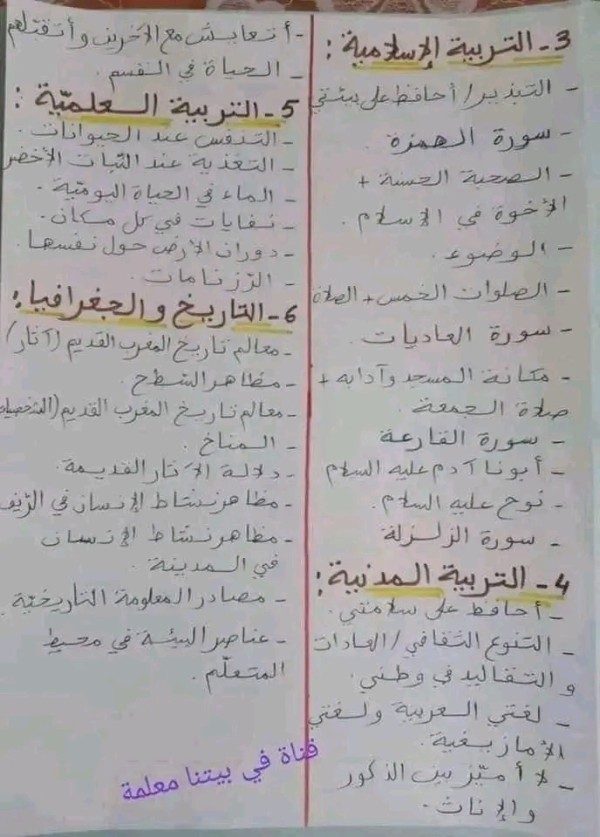 3- التربية الإسلامية :
- التبذير / أحافظ على بيئتي
- سورة الهمزة.
- الصحبة الحسنة +
الأخوة في الإسلام.
- الوضوء.
- الصلوات الخمس + الصلاة
- سورة العاديات.
- مكانة المسجد وآدابه +
صلاة الجمعة.
- سورة القارعة
- أبونا آدم عليه السلام
- نوح عليه السلام.
- سورة الزلزلة
4- التربية المدنية :
- أحافظ على سلامتي.
- التنوع الثقافي / العادات
و التقاليد في وطني.
- لغتي العربية ولغتي
الأمازيغية.
- لا أميّز بين الذكور
والإناث.
- أتعايش مع الآخرين وأتقبلهم
- الحياة في القسم.
5- التربية العلميّة :
- التنفس عند الحيوانات.
- التغذية عند النّبات الأخضر
- الماء في الحياة اليوميّة.
- نفايات في كل مكان.
- دوران الأرض حول نفسها.
- الرّزنامات.
6- التاريخ والجغرافيا :
- معالم تاريخ المغرب القديم (آثار/
- مظاهر السّطح.
- معالم تاريخ المغرب القديم (الشخصيا
- المناخ.
- دلالة الآثار القديمة.
- مظاهر نشاط الإنسان في الرّيف
- مظاهر نشاط الإنسان
في المدينة.
- مصادر المعلومة التاريخيّة.
- عناصر البيئة في محيط
المتعلّم.
قناة في بيتنا معلمة